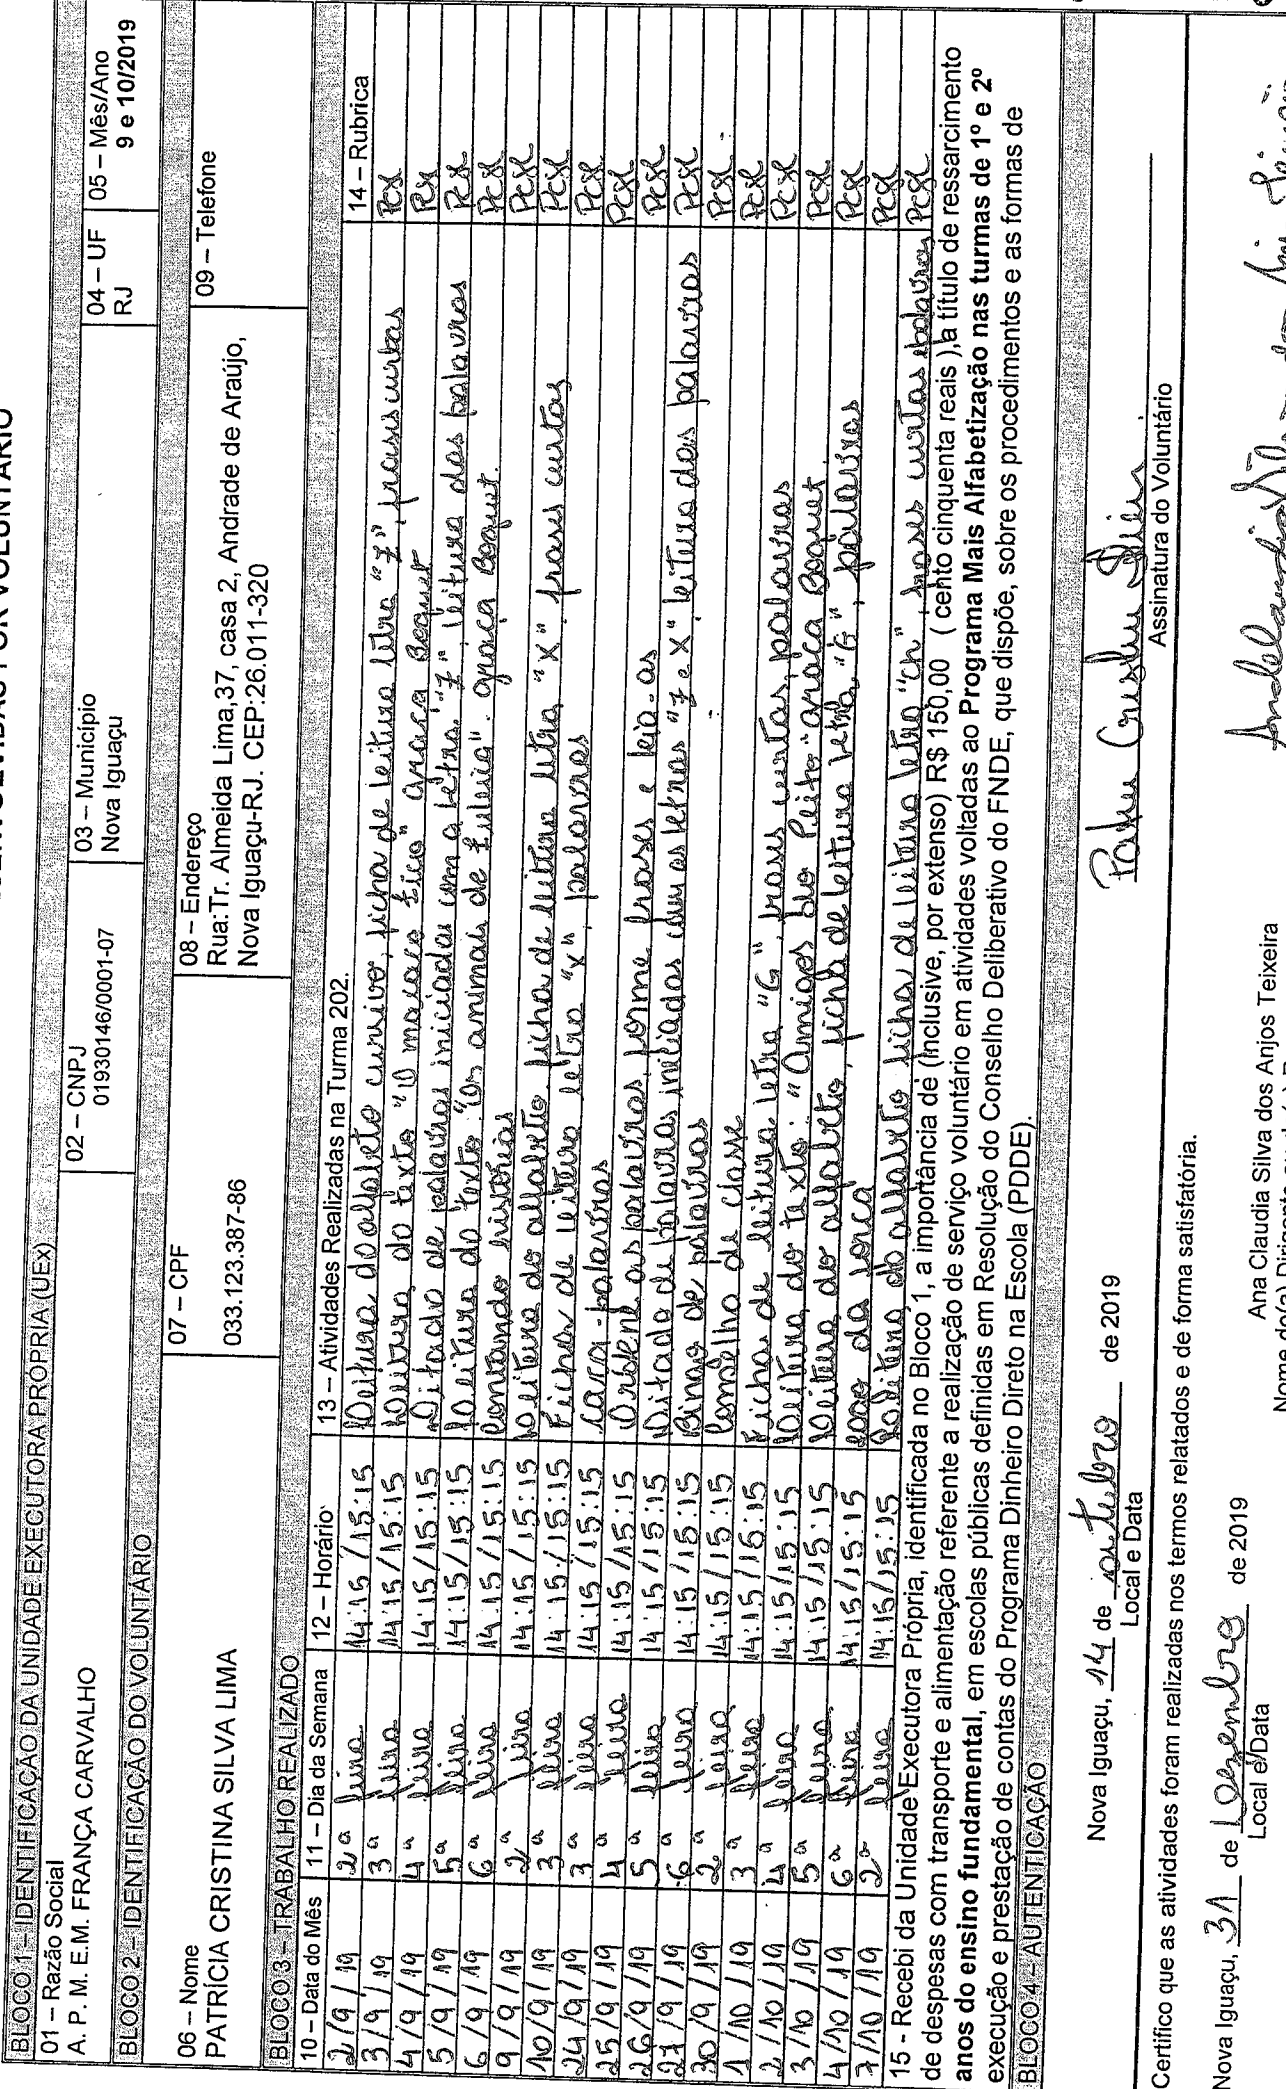 BLOCO 1 – IDENTIFICAÇÃO DA UNIDADE EXECUTORA PRÓPRIA (UEx)
01 – Razão Social
A. P. M. E.M. FRANÇA CARVALHO
02 – CNPJ
01930146/0001-07
03 – Município
Nova Iguaçu
04 – UF
RJ
05 – Mês/Ano
9 e 10/2019
BLOCO 2 – IDENTIFICAÇÃO DO VOLUNTÁRIO
06 – Nome
PATRÍCIA CRISTINA SILVA LIMA
07 – CPF
033.123.387-86
08 – Endereço
Rua:Tr. Almeida Lima,37, casa 2, Andrade de Araújo,
Nova Iguaçu-RJ. CEP:26.011-320
09 – Telefone
BLOCO 3 – TRABALHO REALIZADO
10 – Data do Mês 11 – Dia da Semana 12 – Horário 13 – Atividades Realizadas na Turma 202. 14 – Rubrica
2/9/19 2ª feira 14:15/15:15 Leitura do alfabeto cursivo, ficha de leitura letra "Z", frases curtas Pcsl
3/9/19 3ª feira 14:15/15:15 Leitura do texto "O macaco Zico" Graça Boquet Pcsl
4/9/19 4ª feira 14:15/15:15 Ditado de palavras iniciadas com a letra "Z", leitura das palavras Pcsl
5/9/19 5ª feira 14:15/15:15 Leitura do texto: "Os animais de Zuleica". Graça Boquet. Pcsl
6/9/19 6ª feira 14:15/15:15 Contando histórias Pcsl
9/9/19 2ª feira 14:15/15:15 Leitura do alfabeto, ficha de leitura letra "X" frases curtas Pcsl
10/9/19 3ª feira 14:15/15:15 Ficha de leitura letra "x", palavras Pcsl
24/9/19 3ª feira 14:15/15:15 Caça-palavras Pcsl
25/9/19 4ª feira 14:15/15:15 Ordene as palavras, forme frases e leia-as Pcsl
26/9/19 5ª feira 14:15/15:15 Ditado de palavras iniciadas com as letras "Z e X" leitura das palavras Pcsl
27/9/19 6ª feira 14:15/15:15 Bingo de palavras Pcsl
30/9/19 2ª feira 14:15/15:15 Conselho de classe Pcsl
1/10/19 3ª feira 14:15/15:15 Ficha de leitura letra "G", frases curtas, palavras Pcsl
2/10/19 4ª feira 14:15/15:15 Leitura do texto: "Amigos do Peito" Graça Boquet Pcsl
3/10/19 5ª feira 14:15/15:15 Leitura do alfabeto, ficha de leitura letra "G", palavras Pcsl
4/10/19 6ª feira 14:15/15:15 Jogo da forca Pcsl
7/10/19 2ª feira 14:15/15:15 Leitura do alfabeto ficha de leitura letra "ch", frases curtas e palavras Pcsl
15 - Recebi da Unidade Executora Própria, identificada no Bloco 1, a importância de (Inclusive, por extenso) R$ 150,00 ( cento cinquenta reais ),a título de ressarcimento
de despesas com transporte e alimentação referente a realização de serviço voluntário em atividades voltadas ao Programa Mais Alfabetização nas turmas de 1º e 2º
anos do ensino fundamental, em escolas públicas definidas em Resolução do Conselho Deliberativo do FNDE, que dispõe, sobre os procedimentos e as formas de
execução e prestação de contas do Programa Dinheiro Direto na Escola (PDDE).
BLOCO 4 – AUTENTICAÇÃO
Nova Iguaçu, 14 de outubro de 2019
Local e Data
Assinatura do Voluntário
Certifico que as atividades foram realizadas nos termos relatados e de forma satisfatória.
Nova Iguaçu, 31 de Dezembro de 2019
Local e Data
Ana Claudia Silva dos Anjos Teixeira